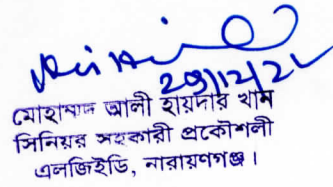 ২৩/১২/২১
মোহাম্মদ আলী হায়দার খান
সিনিয়র সহকারী প্রকৌশলী
এলজিইডি, নারায়ণগঞ্জ।